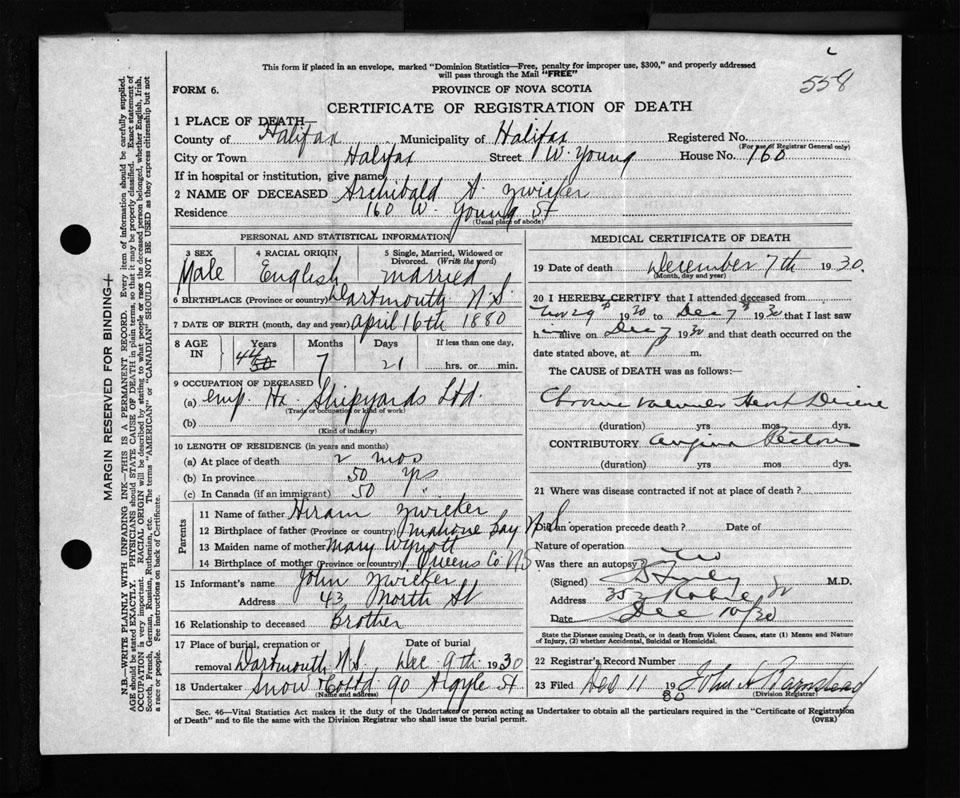 558
This form if placed in an envelope, marked "Dominion Statistics—Free, penalty for improper use, $300," and properly addressed
will pass through the Mail "FREE"
FORM 6. PROVINCE OF NOVA SCOTIA
CERTIFICATE OF REGISTRATION OF DEATH
1 PLACE OF DEATH
County of Halifax Municipality of Halifax Registered No.
(For use of Registrar General only)
City or Town Halifax Street W. Young House No. 160
If in hospital or institution, give name
2 NAME OF DECEASED Archibald A. Zwicker
Residence 160 W. Young St
(Usual place of abode)
PERSONAL AND STATISTICAL INFORMATION
3 SEX 4 RACIAL ORIGIN 5 Single, Married, Widowed or
Divorced. (Write the word)
Male English married
6 BIRTHPLACE (Province or country) Dartmouth N.S.
7 DATE OF BIRTH (month, day and year) april 16th 1880
8 AGE IN Years Months Days If less than one day,
50 7 21 hrs. or min.
9 OCCUPATION OF DECEASED
(a) emp. Hx. Shipyards Ltd.
(Trade or occupation or kind of work)
(b)
(Kind of industry)
10 LENGTH OF RESIDENCE (in years and months)
(a) At place of death 2 mos
(b) In province 50 yrs
(c) In Canada (if an immigrant) 50 "
Parents
11 Name of father Hiram Zwicker
12 Birthplace of father (Province or country) Mahone Bay N.S.
13 Maiden name of mother Mary Wynott
14 Birthplace of mother (Province or country) Queens Co NS
15 Informant's name John Zwicker
Address 43 North St
16 Relationship to deceased Brother
17 Place of burial, cremation or Date of burial
removal Dartmouth N.S., Dec. 9th 1930
18 Undertaker Snow & Co Ltd 90 Argyle St
(Name and address)
MEDICAL CERTIFICATE OF DEATH
19 Date of death December 7th 1930.
(Month, day and year)
20 I HEREBY CERTIFY that I attended deceased from
Nov 29th 1930 to Dec 7th 1930 that I last saw
h alive on Dec 7 1930 and that death occurred on the
date stated above, at m.
The CAUSE of DEATH was as follows:—
Chronic Heart Disease
(duration) yrs mos dys.
CONTRIBUTORY Angina Pectoris
(duration) yrs mos dys.
21 Where was disease contracted if not at place of death?
Did an operation precede death? Date of
Nature of operation
Was there an autopsy? No
(Signed) M.D.
Address 352 Robie St
Date Dec 10/30
State the Disease causing Death, or in death from Violent Causes, state (1) Means and Nature
of Injury, (2) whether Accidental, Suicidal or Homicidal.
22 Registrar's Record Number
23 Filed Dec 11 1930 John A Barnstead
(Division Registrar)
Sec. 46—Vital Statistics Act makes it the duty of the Undertaker or person acting as Undertaker to obtain all the particulars required in the "Certificate of Registration
of Death" and to file the same with the Division Registrar who shall issue the burial permit. (OVER)
MARGIN RESERVED FOR BINDING
N.B.—WRITE PLAINLY WITH UNFADING INK—THIS IS A PERMANENT RECORD. Every item of information should be carefully supplied.
AGE should be stated EXACTLY. PHYSICIANS should STATE CAUSE OF DEATH in plain terms, so that it may be properly classified. Exact statement of
OCCUPATION is very important. RACIAL ORIGIN will be described by stating to what people or race the deceased person belonged, whether English, Irish,
Scotch, French, German, Russian, Ruthenian, etc. The terms "AMERICAN" or "CANADIAN" SHOULD NOT BE USED as they express citizenship but not
a race or people. See instructions on back of Certificate.